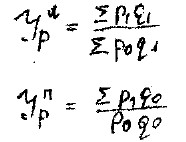 𝒴ₚᵈ = Σ p₁q₁ / Σ p₀q₁
𝒴ₚⁿ = Σ p₁q₀ / p₀q₀